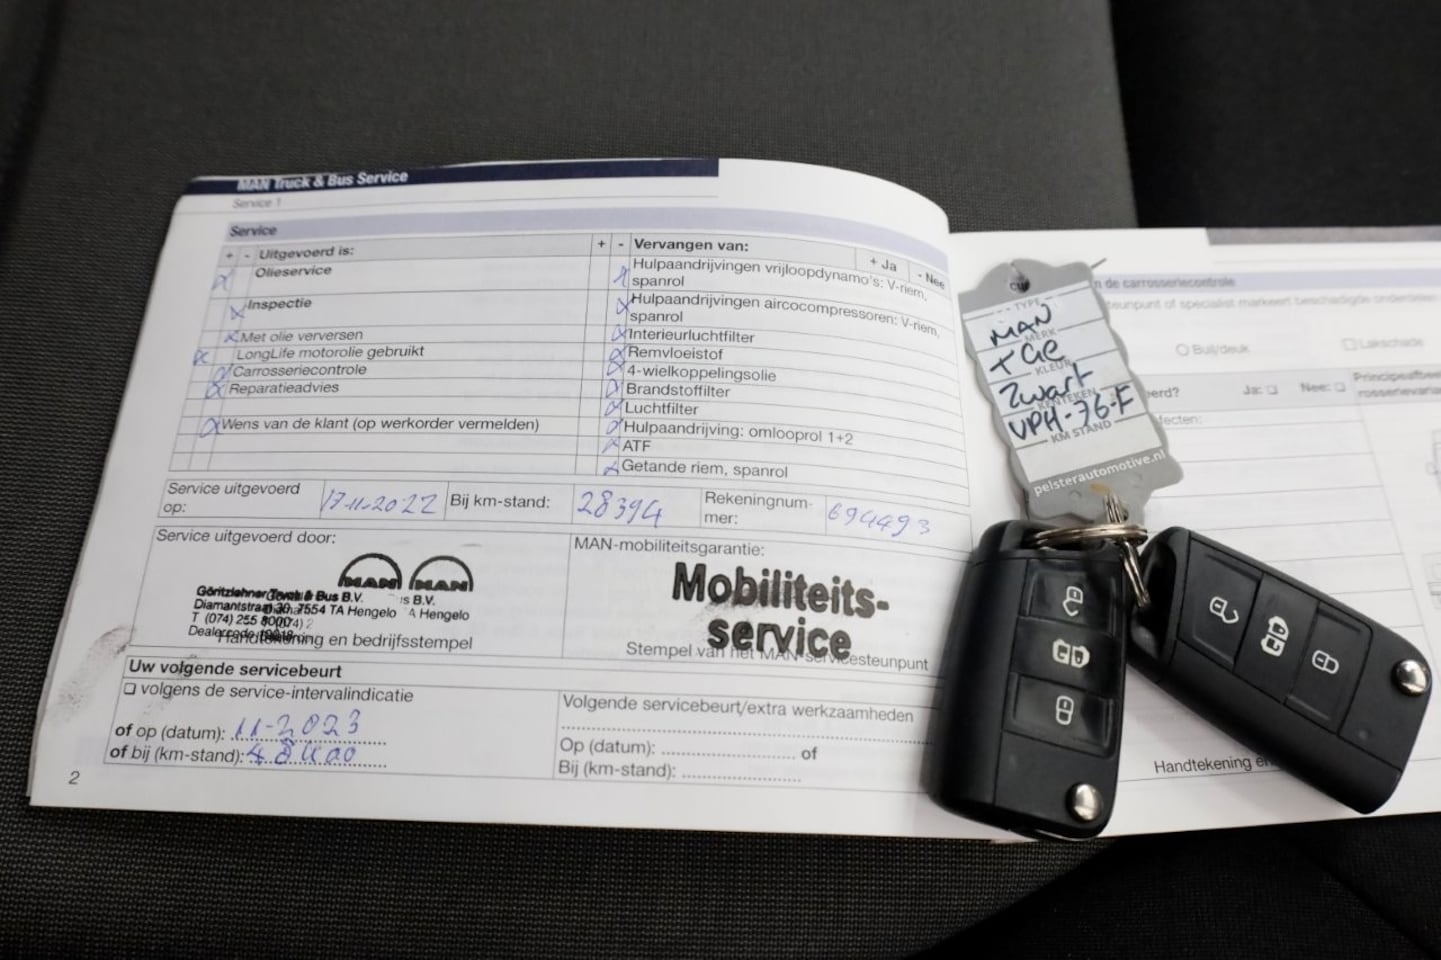 MAN Truck & Bus Service
Service 1
Service
+ - Uitgevoerd is:
Olieservice
Inspectie
Met olie verversen
LongLife motorolie gebruikt
Carrosseriecontrole
Reparatieadvies
Wens van de klant (op werkorder vermelden)
+ - Vervangen van:
+ Ja - Nee
Hulpaandrijvingen vrijloopdynamo's: V-riem,
spanrol
Hulpaandrijvingen aircocompressoren: V-riem,
spanrol
Interieurluchtfilter
Remvloeistof
4-wielkoppelingsolie
Brandstoffilter
Luchtfilter
Hulpaandrijving: omlooprol 1+2
ATF
Getande riem, spanrol
Service uitgevoerd
op:
17-11-2022
Bij km-stand:
28394
Rekeningnum-
mer:
694493
Service uitgevoerd door:
MAN MAN
Göritzlehner Truck & Bus B.V. s B.V.
Diamantstraat 30, 7554 TA Hengelo A Hengelo
T (074) 255 8000
Dealercode
Handtekening en bedrijfsstempel
MAN-mobiliteitsgarantie:
Mobiliteits-
service
Stempel van het MAN-servicesteunpunt
Uw volgende servicebeurt
volgens de service-intervalindicatie
of op (datum): 11-2023
of bij (km-stand):
Volgende servicebeurt/extra werkzaamheden
Op (datum): of
Bij (km-stand):
2
TYPE
MAN
MERK
TGE
KLEUR
Zwart
KENTEKEN
VPH-76-F
KM STAND
pelsterautomotive.nl
n de carrosseriecontrole
teunpunt of specialist markeert beschadigde onderdelen
Buil/deuk
Lakschade
eerd?
Ja:
Nee:
fecten:
Handtekening en